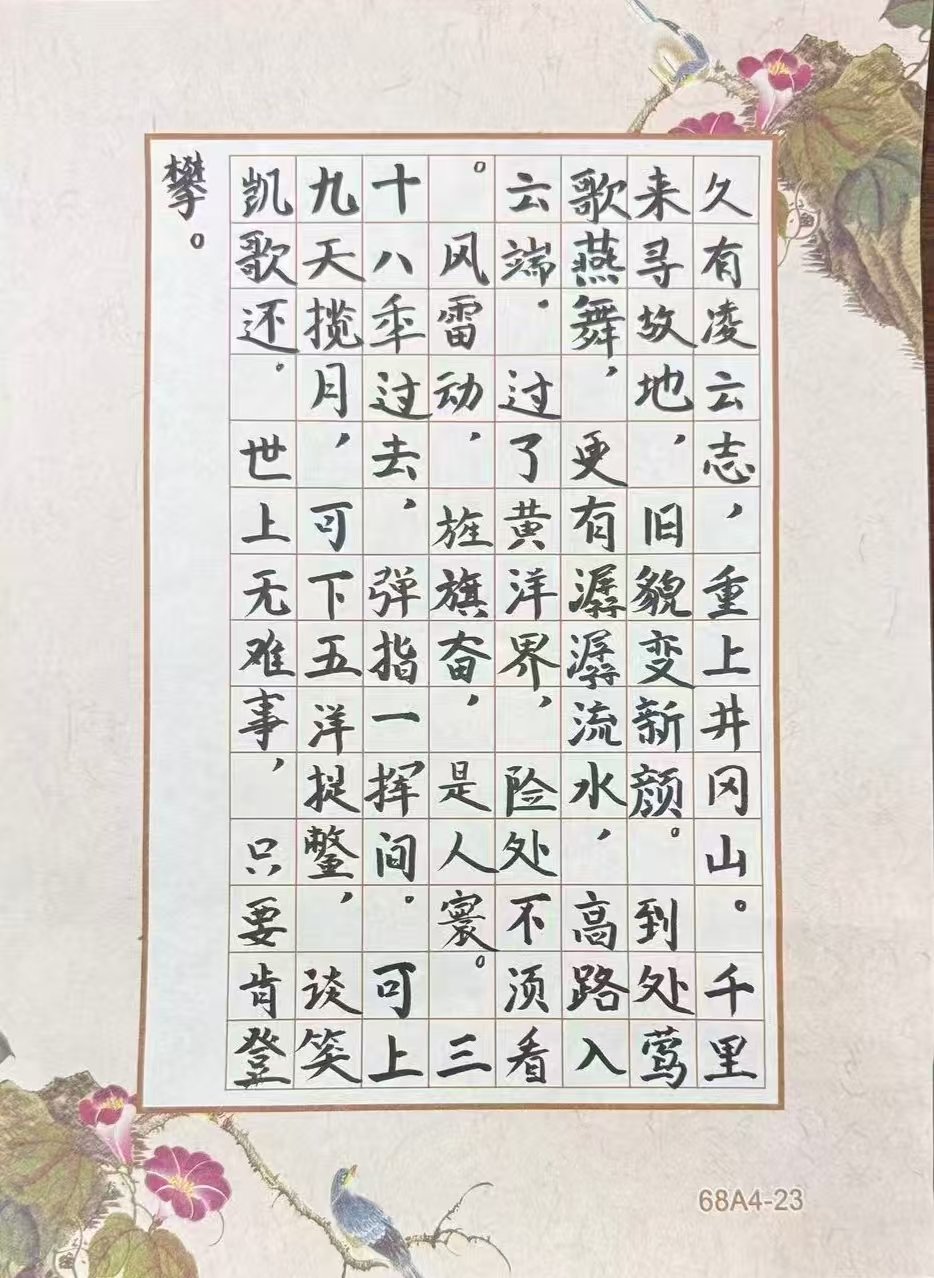 久有凌云志，重上井冈山。千里
来寻故地，旧貌变新颜。到处莺
歌燕舞，更有潺潺流水，高路入
云端。过了黄洋界，险处不须看
。风雷动，旌旗奋，是人寰。三
十八年过去，弹指一挥间。可上
九天揽月，可下五洋捉鳖，谈笑
凯歌还。世上无难事，只要肯登
攀。
68A4-23